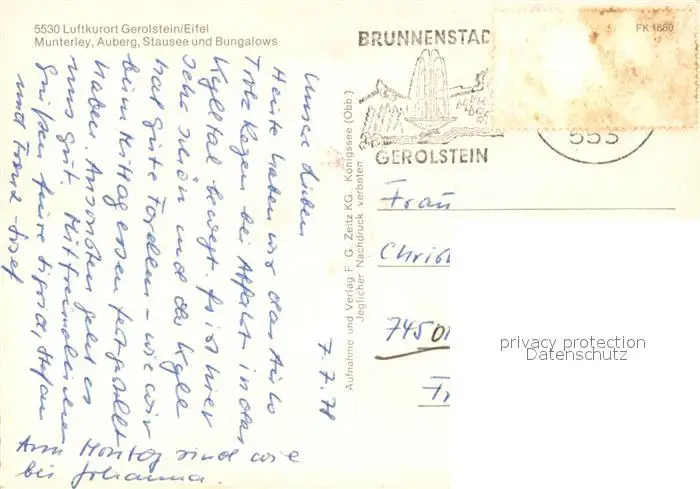 5530 Luftkurort Gerolstein/Eifel
Munterley, Auberg, Stausee und Bungalows
BRUNNENSTAD
GEROLSTEIN
553
FK 1680
Aufnahme und Verlag F. G. Zeitz KG., Königssee (Obb.)
Jeglicher Nachdruck verboten
7.7.78
Unsere Lieben
Heute haben wir das Auto
Trotz Regen bei Abfahrt in das
Kylltal bewegt. Es ist hier
sehr schön und die Kyll
hat gute Forellen - wie wir
beim Mittagessen festgestellt
haben. Ansonsten geht es
uns gut. Mit freundlichen
Grüßen Eure Sigrid, Stefan
und Franz-Josef
Am Montag sind wir
bei Johanna.
Frau
Christ
7450
privacy protection
Datenschutz